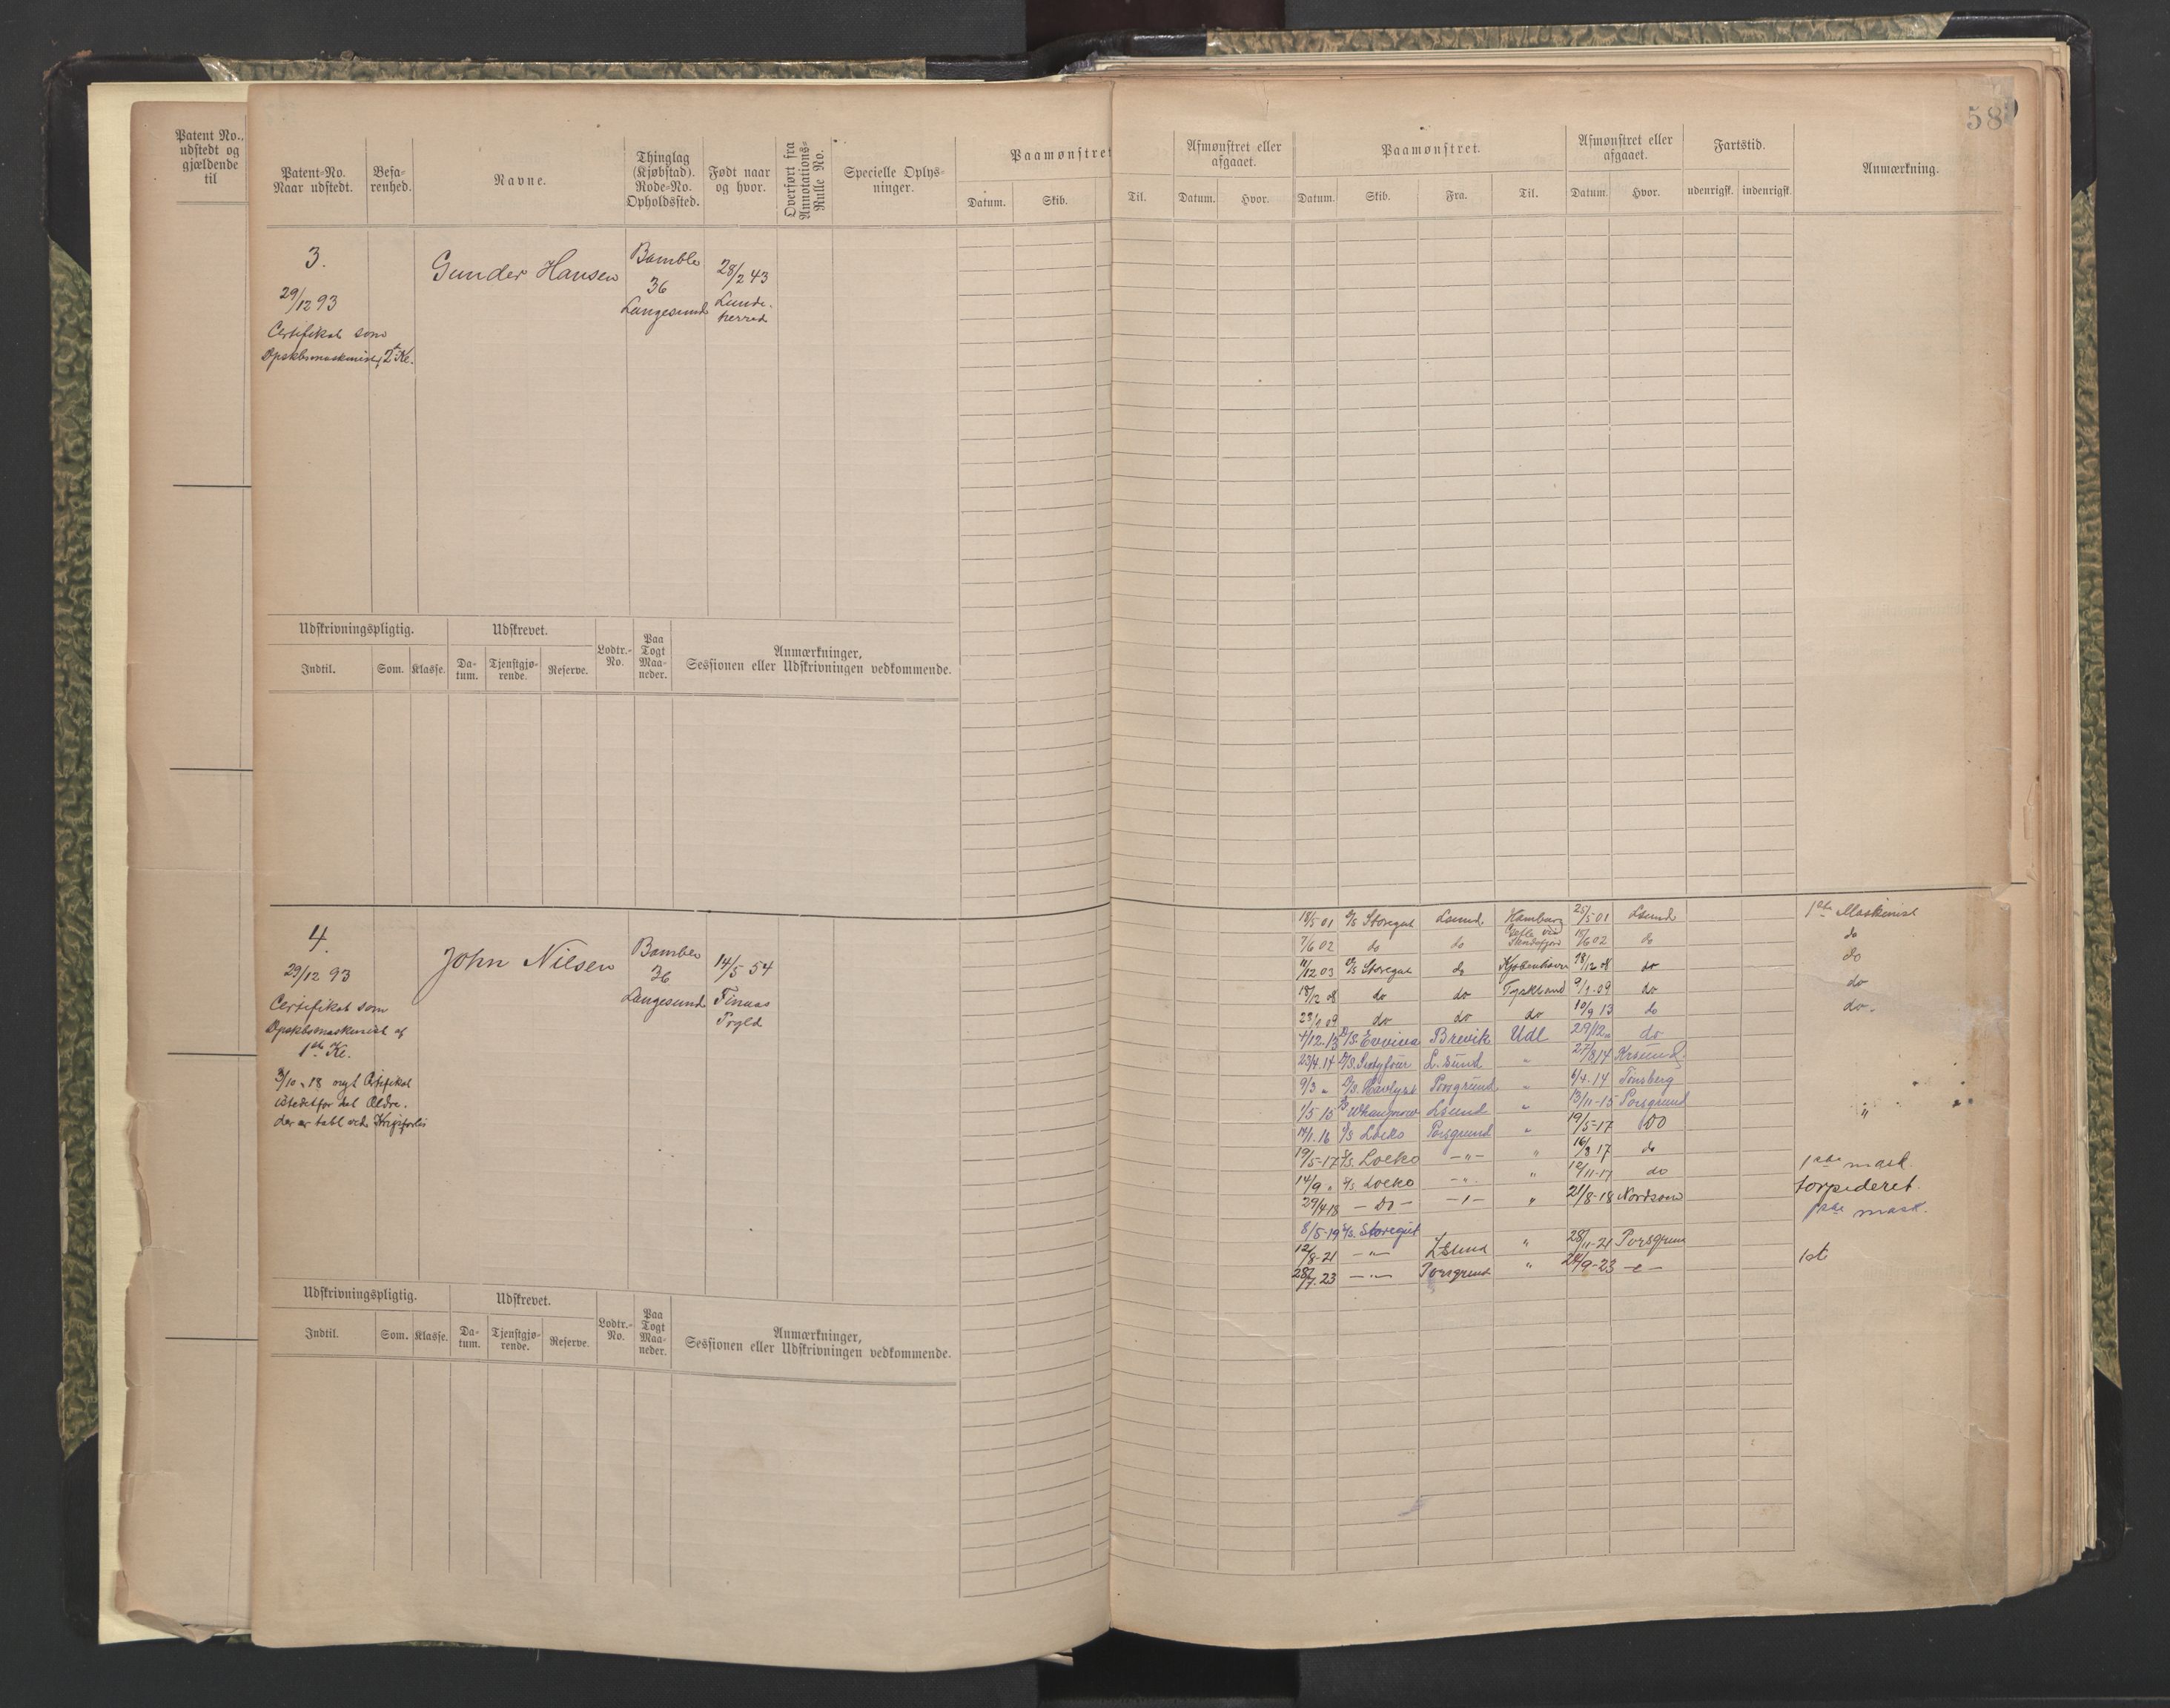 58
Patent No.,
udstedt og
gjældende
til
Patent-No.
Naar udstedt.
Befa-
renhed.
Navne.
Thinglag
(Kjøbstad).
Rode-No.
Opholdssted.
Født naar
og hvor.
Overført fra
Annotations-
Rulle No.
Specielle Oplys-
ninger.
Paamønstret
Datum. Skib.
Til.
Afmønstret eller
afgaaet.
Datum. Hvor.
Paamønstret.
Datum. Skib. Fra. Til.
Afmønstret eller
afgaaet.
Datum. Hvor.
Fartstid.
udenrigsk. indenrigsk.
Anmærkning.
3.
29/12 93
Certifikat som
2den Kl.
Gunder Hansen
Bamble
36
Langesund
28/2 43
Lunde
herred
Udskrivningspligtig.
Indtil. Som. Klasse.
Udskrevet.
Da-
tum.
Tjenstgjø-
rende.
Reserve.
Lodtr.-
No.
Paa
Togt
Maa-
neder.
Anmærkninger,
Sessionen eller Udskrivningen vedkommende.
4.
29/12 93
Certifikat som
Opskbsmaskinist af
1ste Kl.
3/10 - 18 nyt Certifikat
istedetfor det Ældre.
der er tabt ved Krigsforlis
John Nilsen
Bamble
36
Langesund
14/5 54
18/5 01 S/S Storegut Lsund Hamburg 25/5 01 Lsund 1ste Maskinist
7/6 02 do do Gefle via 15/6 02 do do
11/12 03 S/S Storegut do Kjøbenhavn 18/12 08 do do
18/12 08 do do Tyskland 9/1 09 do do
23/1 09 do do do 10/9 13 do do.
4/12-13 Brevik Udl 29/12 " do
23/4.14 D/S. Sixtyfour L.sund " 27/8 14 Krsund
9/3 " D/S. Havlyst Porsgrund " 6/4.14 Tønsberg
1/5 15 Lsund " 13/11-15 Porsgrund
14/1.16 S/S Loeko Porsgrund " 19/5-17 DO "
19/5-17 S/S. Loeko -"- " 16/8 17 do
14/9 " S/S Loeko -"- " 12/11-17 do 1ste mask.
29/4 18 - Do - -"- " 21/8-18 Nordsøen torpederet.
8/5-19 S/S. Storegut 1ste mask.
12/8-21 -"- Lsund " 28/11-21 Porsgrund
28/7.23 -"- Porsgrund " 24/9-23 -"- 1ste
Udskrivningspligtig.
Indtil. Som. Klasse.
Udskrevet.
Da-
tum.
Tjenstgjø-
rende.
Reserve.
Lodtr.-
No.
Paa
Togt
Maa-
neder.
Anmærkninger,
Sessionen eller Udskrivningen vedkommende.